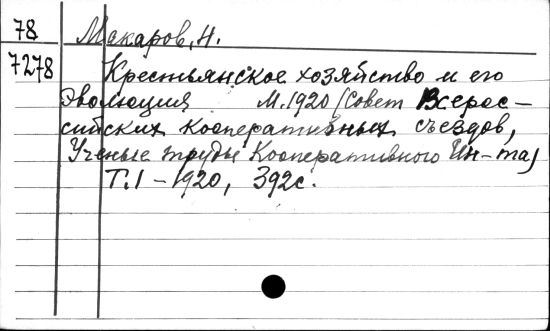 78 Макаров, Н.
7278 Крестьянское хозяйство и его
эволюция М. 1920 (Совет Всерос-
сийских кооперативных съездов,
Ученые труды Кооперативного Ин-та)
Т. I - 1920, 392 с.